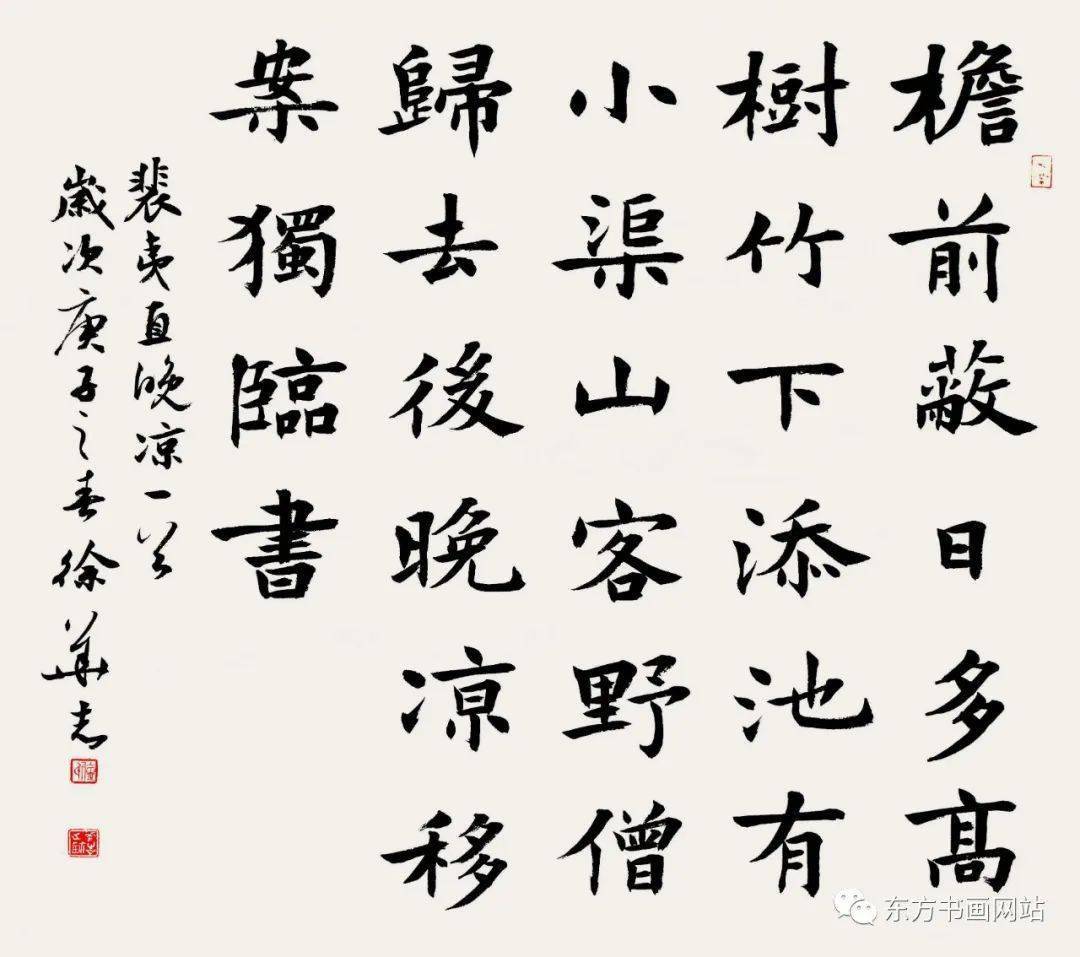 檐前蔽日多髙
樹竹下添池有
小渠山客野僧
歸去後晚凉移
案獨臨書
裴夷直晚凉一首
歲次庚子之春徐華志
东方书画网站